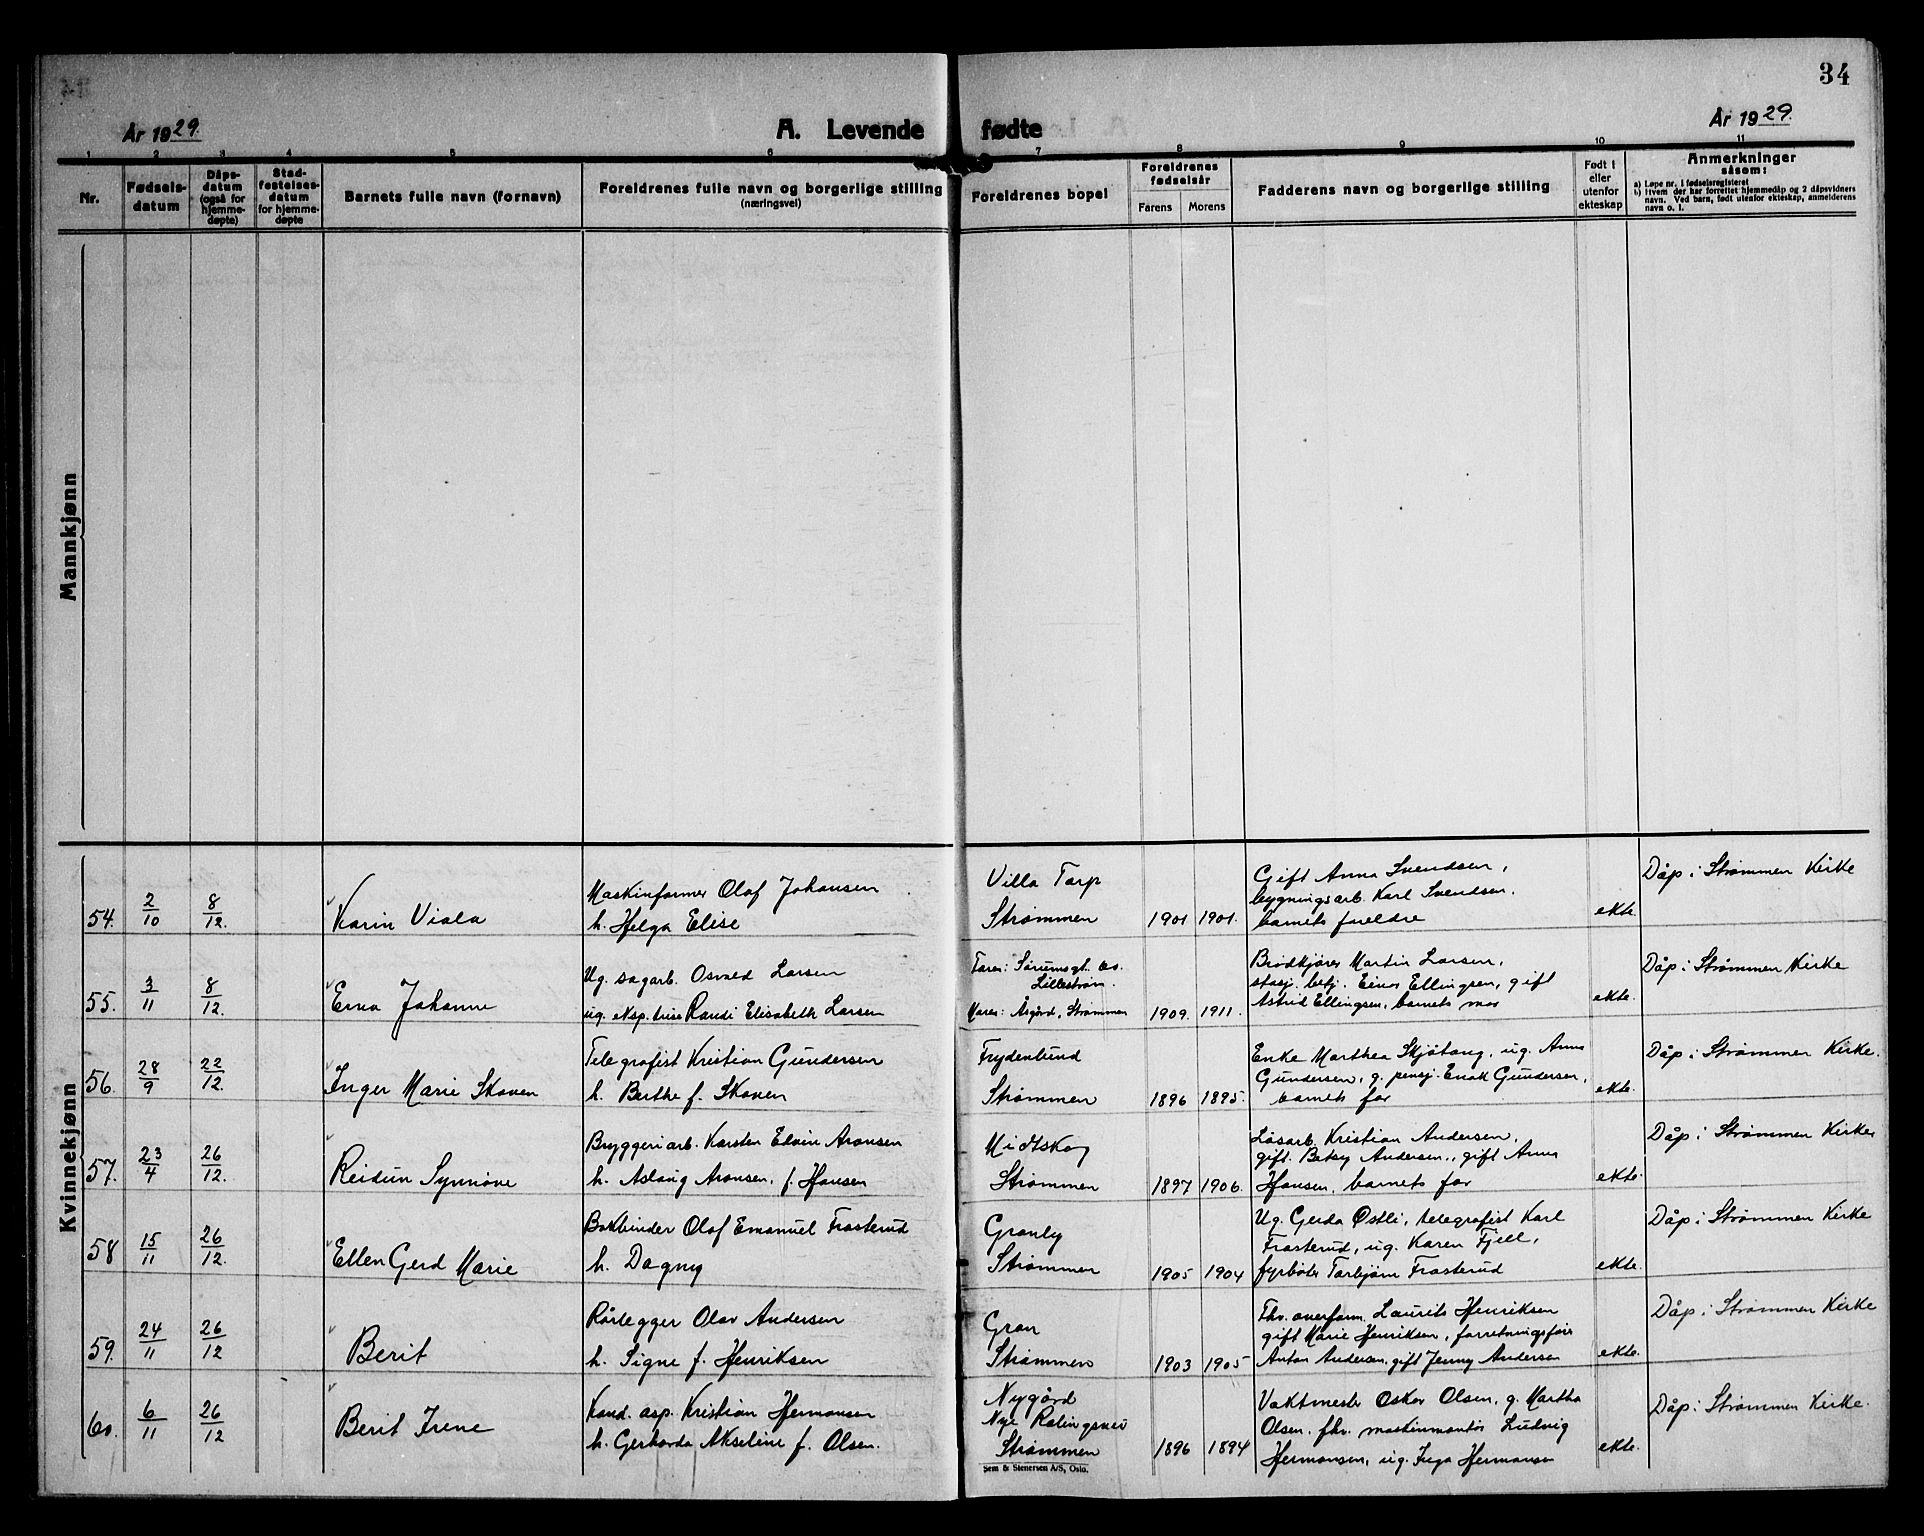 34
År 1929.
A. Levende fødte
År 1929.
1 2 3 4 5 6 7 8 9 10 11
Nr.
Fødsels-
datum
Dåps-
datum
(også for
hjemme-
døpte)
Stad-
festelses-
datum
for hjemme-
døpte
Barnets fulle navn (fornavn)
Foreldrenes fulle navn og borgerlige stilling
(næringsvei)
Foreldrenes bopel
Foreldrenes
fødselsår
Farens Morens
Fadderens navn og borgerlige stilling
Født i
eller
utenfor
ekteskap
Anmerkninger
såsom:
a) Løpe nr. i fødselsregisteret
b) Hvem der har forrettet hjemmedåp og 2 dåpsvidners
navn. Ved barn, født utenfor ekteskap, anmelderens
navn o. l.
Mannkjønn
Kvinnekjønn
54. 2/10 8/12.
Karin Viola
Maskinformer Olaf Johansen
h. Helga Elise
Villa Tarp
Strømmen
1901 1901.
Gift Anna Svendsen,
bygningsarb. Karl Svendsen.
barnets foreldre
ekte.
Dåp i Strømmen Kirke
55. 3/11 8/12.
Erna Johanne
Ug. sagarb. Osvald Larsen
ug. Randi Elisabeth Larsen
Faren: Sørumsgt.
Lillestrøm.
Moren: Åsgård, Strømmen
1909. 1911.
Brødkjører Martin Larsen,
stasj. betj. Einar Ellingsen, gift
Astrid Ellingsen, barnets mor
ekte.
Dåp i Strømmen Kirke
56. 28/9 22/12.
Inger Marie Skoven
Telegrafist Kristian Gundersen
h. Berthe f. Skoven
Frydenlund
Strømmen
1896 1895.
Enke Marthea Skjøtang, ug. Anna
Gundersen, g. pensj. Enok Gundersen,
barnets far
ekte.
Dåp i Strømmen Kirke.
57. 23/4 26/12.
Reidun Synnøve
Bryggeriarb. Karsten Elvin Aronsen
h. Aslaug Aronsen, f. Hansen
Midtskog
Strømmen
1897 1906.
Løsarb. Kristian Andersen,
gift. Betsy Andersen, gift Anna
Hansen, barnets far
ekte.
Dåp i Strømmen Kirke
58 15/11 26/12.
Ellen Gerd Marie
Bokbinder Olaf Emanuel Frosterud
h. Dagny
Granly
Strømmen
1905 1904
Ug. Gerda Østli, telegrafist Karl
Frosterud, ug. Karen Fjell,
fyrbøter Torbjørn Frosterud
ekte.
Dåp i Strømmen Kirke
59. 24/11 26/12
Berit
Rørlegger Olav Andersen
h. Signe f. Henriksen
Gran
Strømmen
1903 1905
Fhv. overform. Laurits Henriksen
gift Marie Henriksen, forretningsfører
Anton Andersen, gift Jenny Andersen
ekte.
Dåp i Strømmen Kirke
60. 6/11 26/12
Berit Irene
Kond. asp. Kristian Hermansen
h. Gerharda Akseline f. Olsen.
Nygård
Nye Rælingsvei
Strømmen
1896 1894
Vaktmester Oskar Olsen, g. Martha
Olsen. fhv. maskinmontør Ludvig
Hermansen, ug. Inga Hermansen
ekte.
Dåp i Strømmen Kirke.
Sem & Stenersen A/S, Oslo.